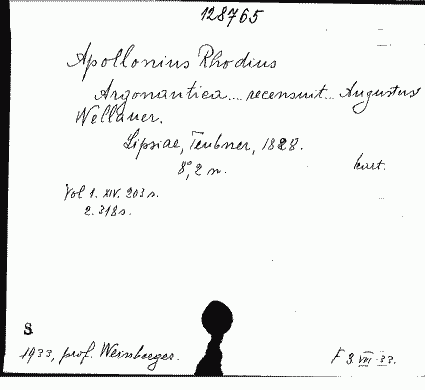 128765
Apollonius Rhodius
Argonautica... recensuit... Augustus
Wellauer.
Lipsiae, Teubner, 1828.
8°, 2 n. kart.
Vol 1. XIV. 203 s.
2. 318 s.
S
1933, prof. Weinberger. F 3 VIII 33.